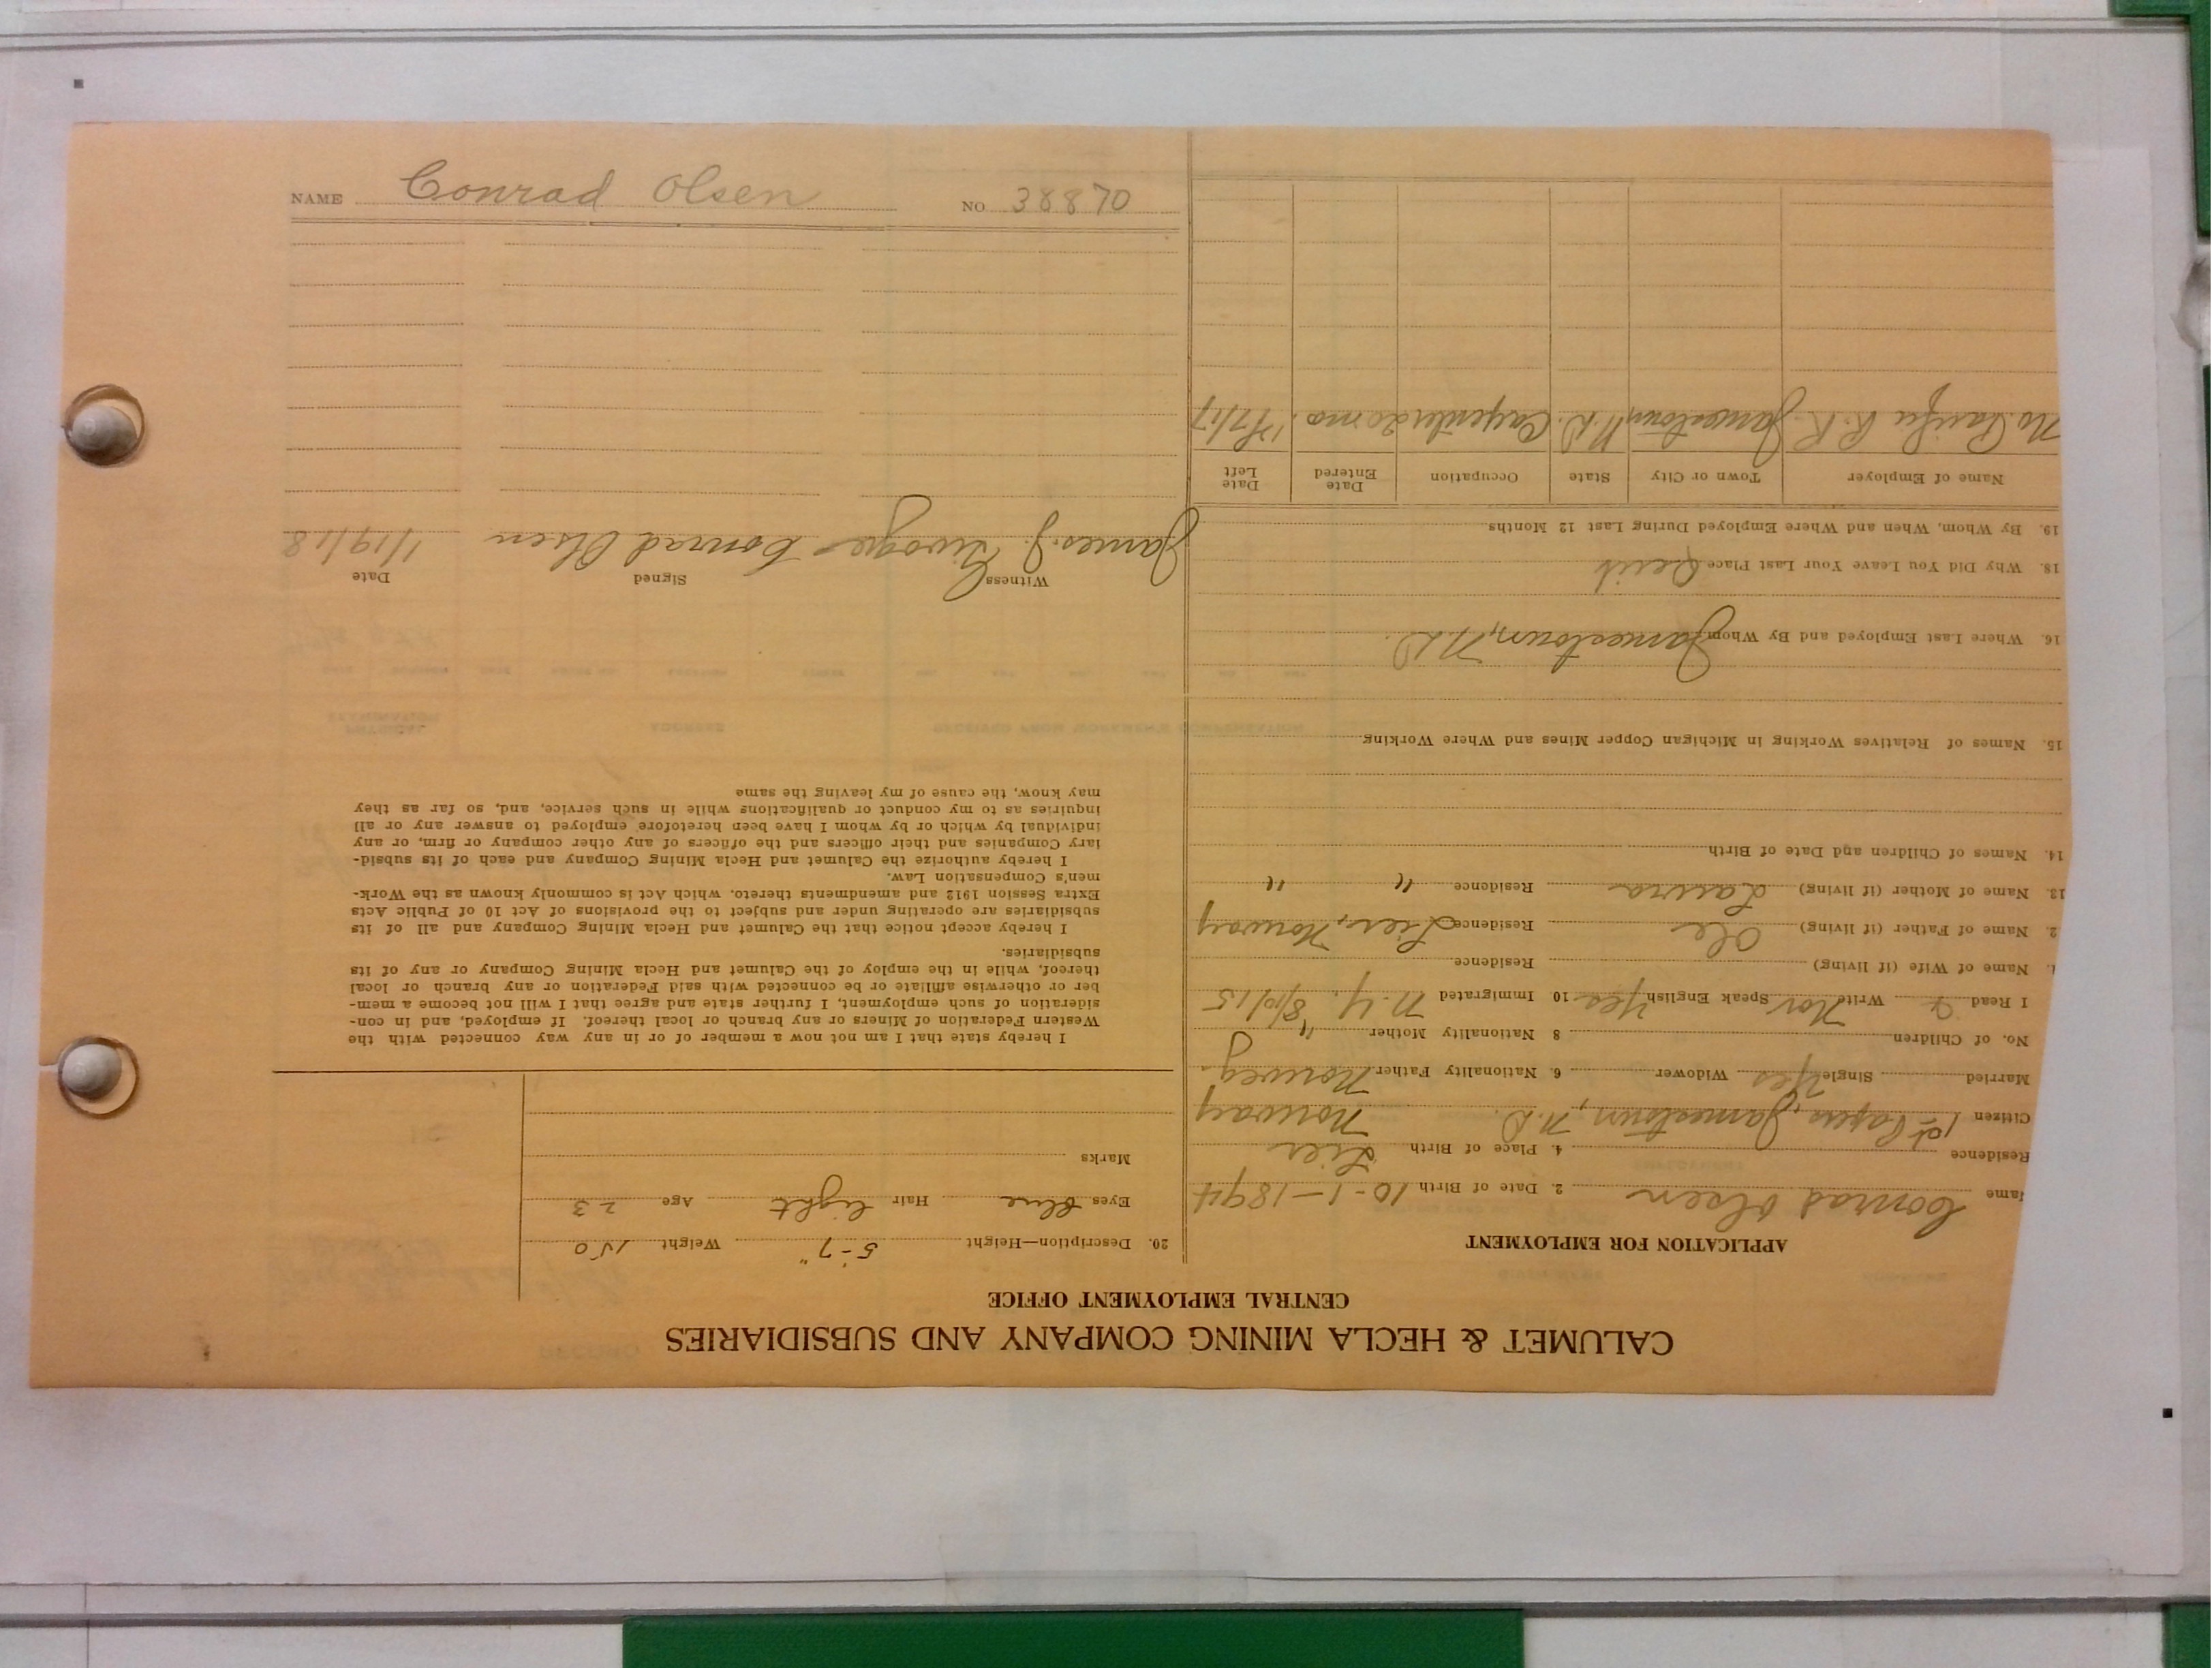 CALUMET & HECLA MINING COMPANY AND SUBSIDIARIES
CENTRAL EMPLOYMENT OFFICE
APPLICATION FOR EMPLOYMENT
ame Conrad Olsen 2. Date of Birth 10-1-1894
Residence 4. Place of Birth Lier
Citizen 1st Papers, Jamestown, N.D. Norway
Married Single Yes Widower 6. Nationality Father Norweg.
No. of Children 8 Nationality Mother "
I Read & Write Nor Speak English Yes 10 Immigrated N.Y. 8/10/15
Name of Wife (if living) Residence
2. Name of Father (if living) Ole Residence Lier, Norway
13. Name of Mother (if living) Laura Residence " "
14. Names of Children and Date of Birth
15. Names of Relatives Working in Michigan Copper Mines and Where Working.
16. Where Last Employed and By Whom Jamestown, N.D.
18. Why Did You Leave Your Last Place Quit
19. By Whom, When and Where Employed During Last 12 Months.
Name of Employer Town or City State Occupation Date Entered Date Left
No. Pacific R.R. Jamestown, N.D. Carpenter 20 mo.
20. Description—Height 5-7" Weight 150
Eyes blue Hair light Age 23
Marks
I hereby state that I am not now a member of or in any way connected with the
Western Federation of Miners or any branch or local thereof. If employed, and in con-
sideration of such employment, I further state and agree that I will not become a mem-
ber or otherwise affiliate or be connected with said Federation or any branch or local
thereof, while in the employ of the Calumet and Hecla Mining Company or any of its
subsidiaries.
I hereby accept notice that the Calumet and Hecla Mining Company and all of its
subsidiaries are operating under and subject to the provisions of Act 10 of Public Acts
Extra Session 1912 and amendments thereto, which Act is commonly known as the Work-
men's Compensation Law.
I hereby authorize the Calumet and Hecla Mining Company and each of its subsid-
iary Companies and their officers and the officers of any other company or firm, or any
individual by which or by whom I have been heretofore employed to answer any or all
inquiries as to my conduct or qualifications while in such service, and, so far as they
may know, the cause of my leaving the same
Witness Signed Date
James. J. Conrad Olsen 1/19/18
NAME Conrad Olsen NO 38870